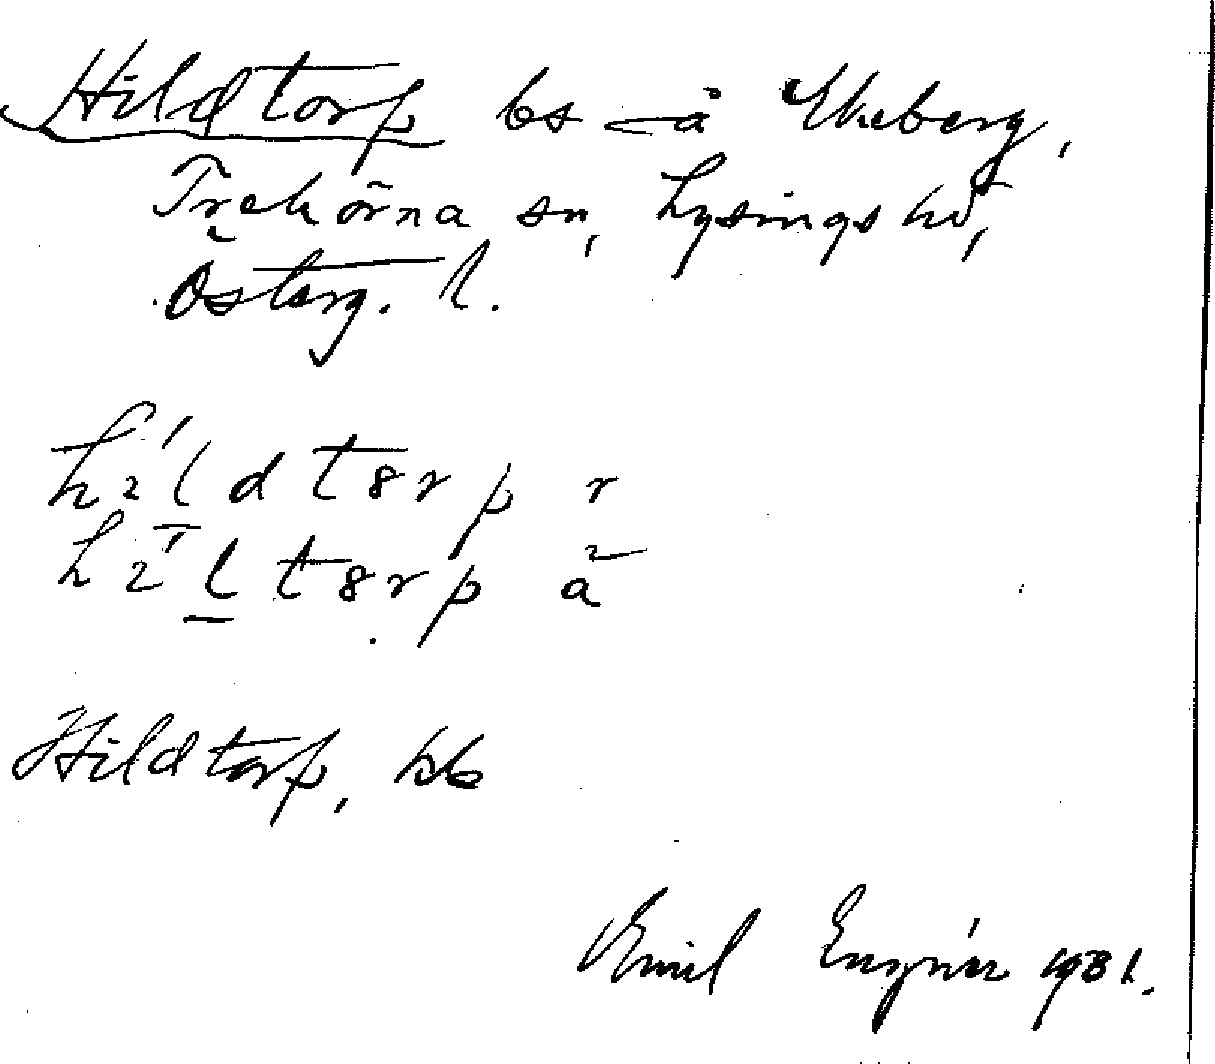 Hildtorp bs å Ekeberg,
Trehörna sn, Lysings hd,
Österg. l.
hildtorp r
hiltorp a
Hildtorp, kb
Emil Engnér 1931.